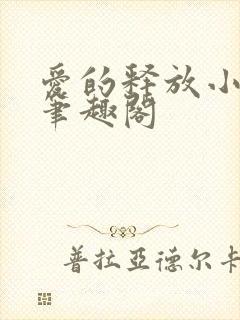 愛的释放小
筆趣閣
普拉亞德尔卡